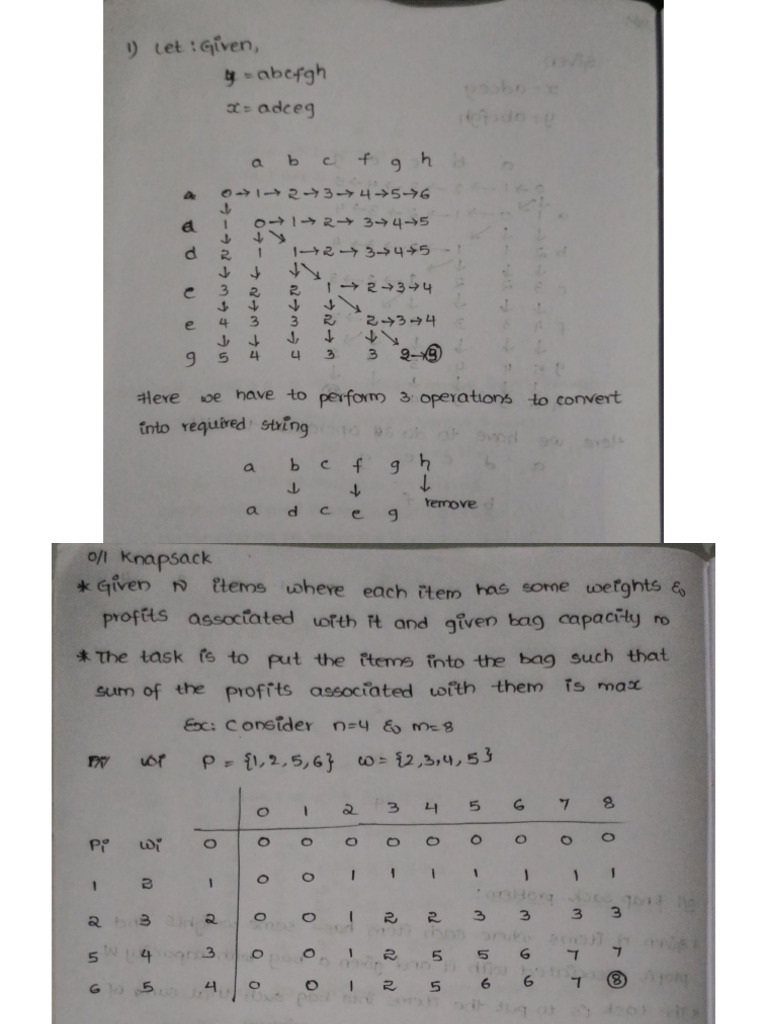 1) Let : Given,
y = abcfgh
x = adceg
a b c f g h
0 → 1 → 2 → 3 → 4 → 5 → 6
↓
a 1 0 → 1 → 2 → 3 → 4 → 5
↓ ↓ ↘
d 2 1 1 → 2 → 3 → 4 → 5
↓ ↓ ↓ ↘
c 3 2 2 1 → 2 → 3 → 4
↓ ↓ ↓ ↓ ↘
e 4 3 3 2 2 → 3 → 4
↓ ↓ ↓ ↓ ↓ ↘
g 5 4 4 3 3 2 → 3
Here we have to perform 3 operations to convert
into required string
a b c f g h
↓ ↓ ↓
a d c e g remove
0/1 Knapsack
* Given N items where each item has some weights &
profits associated with it and given bag capacity m
* The task is to put the items into the bag such that
sum of the profits associated with them is max
Ex: Consider n=4 & m=8
wi P = {1,2,5,6} w = {2,3,4,5}
0 1 2 3 4 5 6 7 8
Pi wi 0 0 0 0 0 0 0 0 0 0
1 2 1 0 0 1 1 1 1 1 1 1
2 3 2 0 0 1 2 2 3 3 3 3
5 4 3 0 0 1 2 5 5 6 7 7
6 5 4 0 0 1 2 5 6 6 7 8